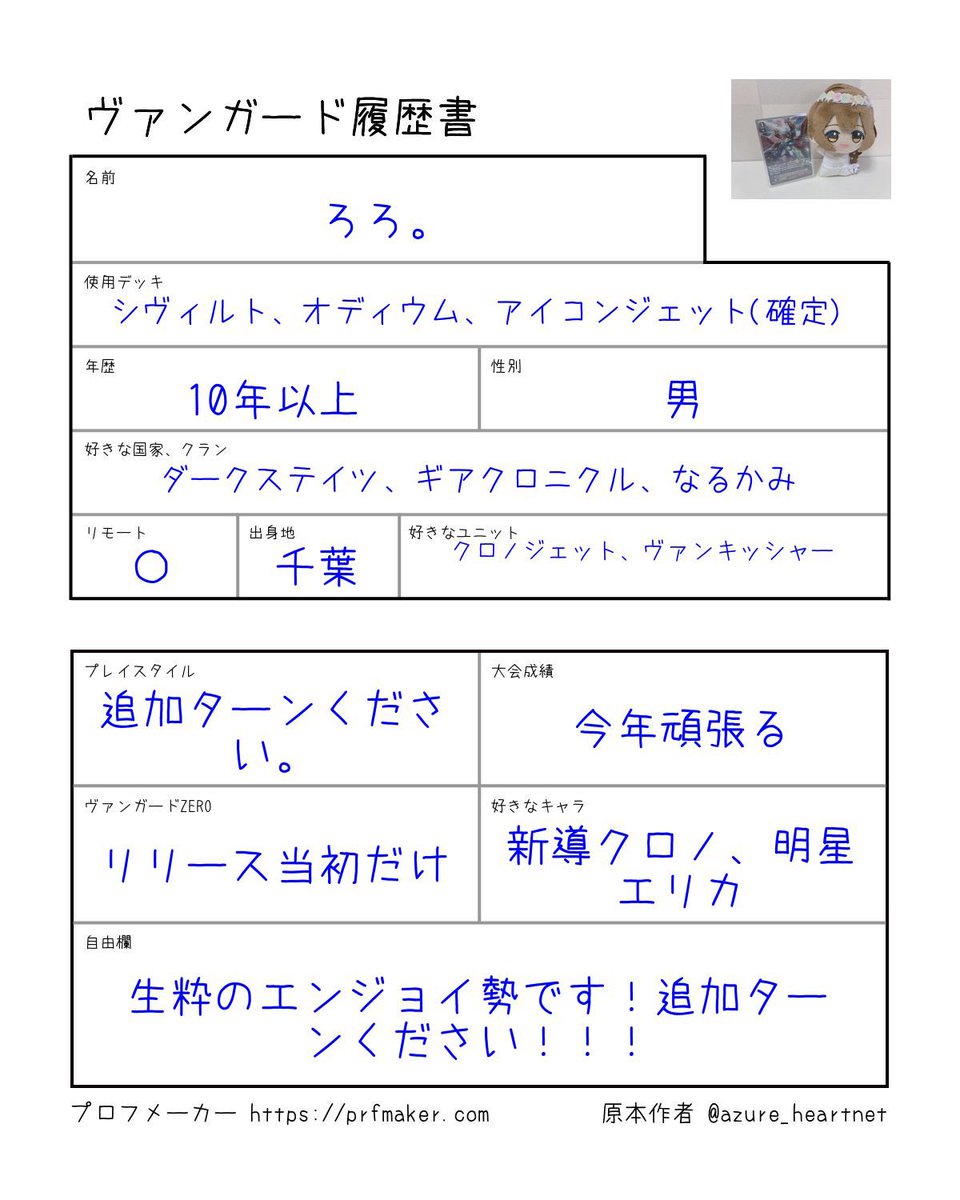 ヴァンガード履歴書
名前
ろろ。
使用デッキ
シヴィルト、オディウム、アイコンジェット(確定)
年歴
10年以上
性別
男
好きな国家、クラン
ダークステイツ、ギアクロニクル、なるかみ
リモート
○
出身地
千葉
好きなユニット
クロノジェット、ヴァンキッシャー
プレイスタイル
追加ターンくださ
い。
大会成績
今年頑張る
ヴァンガードZERO
リリース当初だけ
好きなキャラ
新導クロノ、明星
エリカ
自由欄
生粋のエンジョイ勢です！追加ター
ンください！！！
プロフメーカー https://prfmaker.com
原本作者 @azure_heartnet